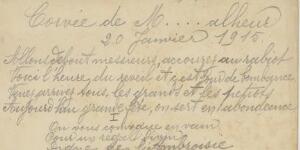 Corvée de M.....alheur
20 Janvier 1915.
Allons debout messieurs, accourez au rabiot
Voici l'heure du réveil et c'est jour de
Vous arrivez tous, les grands et les petits
Aujourd'hui grande fête, on sert en l'abondance
I
On vous convoque en vain
Pour un repas
d'Ambroisie